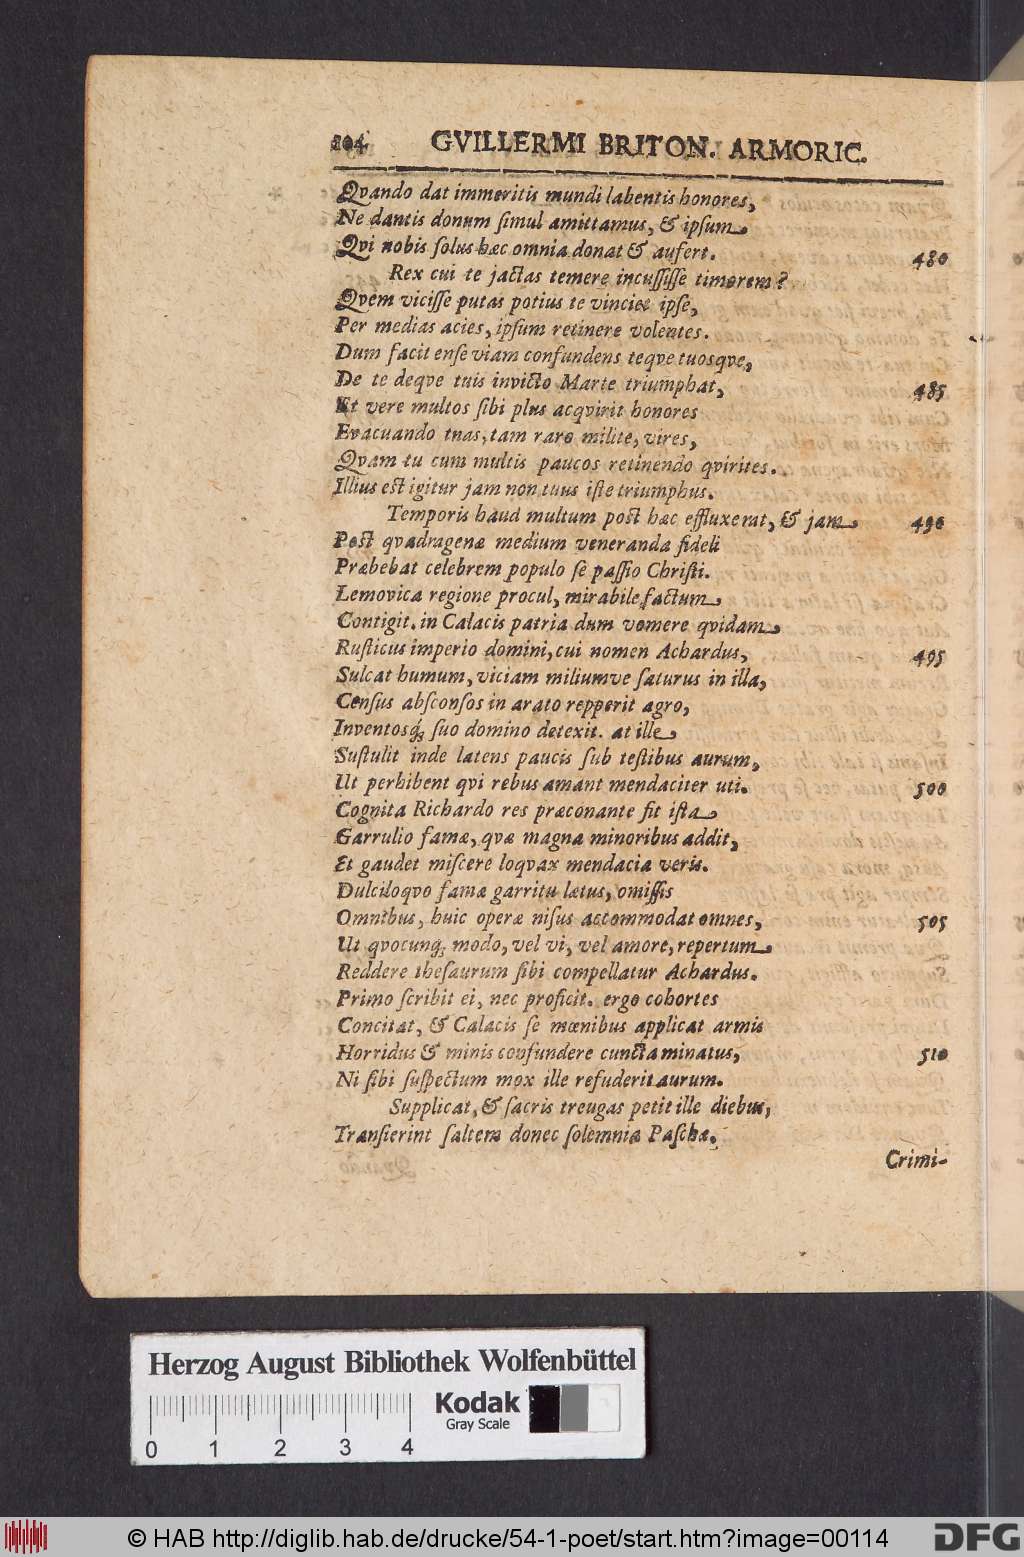 104 GVILLERMI BRITON. ARMORIC.
Qvando dat immeritis mundi labentis honores,
Ne dantis donum ſimul amittamus, & ipſum
Qvi nobis ſolus hæc omnia donat & aufert. 480
Rex cui te jactas temere incuſſiſſe timorem?
Qvem viciſſe putas potius te vincit ipſe,
Per medias acies, ipſum retinere volentes.
Dum facit enſe viam confundens teqve tuosqve,
De te deqve tuis invicto Marte triumphat, 485
Et vere multos ſibi plus acqvirit honores
Evacuando tuas, tam raro milite, vires,
Qvam tu cum multis paucos retinendo qvirites.
Illius eſt igitur jam non tuus iſte triumphus.
Temporis haud multum poſt hæc effluxerat, & jam 490
Poſt qvadragenæ medium veneranda fideli
Præbebat celebrem populo ſe paſſio Chriſti.
Lemovica regione procul, mirabile factum
Contigit. in Calacis patria dum vomere qvidam
Ruſticus imperio domini, cui nomen Achardus, 495
Sulcat humum, viciam miliumve ſaturus in illa,
Cenſus abſconſos in arato repperit agro,
Inventosq́ꝫ ſuo domino detexit. at ille
Suſtulit inde latens paucis ſub teſtibus aurum,
Ut perhibent qvi rebus amant mendaciter uti. 500
Cognita Richardo res præconante fit iſta
Garrulio famæ, qvæ magna minoribus addit,
Et gaudet miſcere loqvax mendacia veris.
Dulciloqvo famæ garritu lætus, omiſſis
Omnibus, huic operæ niſus accommodat omnes, 505
Ut qvocunq́ꝫ modo, vel vi, vel amore, repertum
Reddere theſaurum ſibi compellatur Achardus.
Primo ſcribit ei, nec proficit. ergo cohortes
Concitat, & Calacis ſe mœnibus applicat armis
Horridus & minis confundere cuncta minatus, 510
Ni ſibi ſuſpectum mox ille refuderit aurum.
Supplicat, & ſacris treugas petit ille diebus,
Tranſierint ſaltem donec ſolemnia Paſchæ.
Crimi-
Herzog August Bibliothek Wolfenbüttel
0 1 2 3 4
Kodak
Gray Scale
© HAB http://diglib.hab.de/drucke/54-1-poet/start.htm?image=00114
DFG